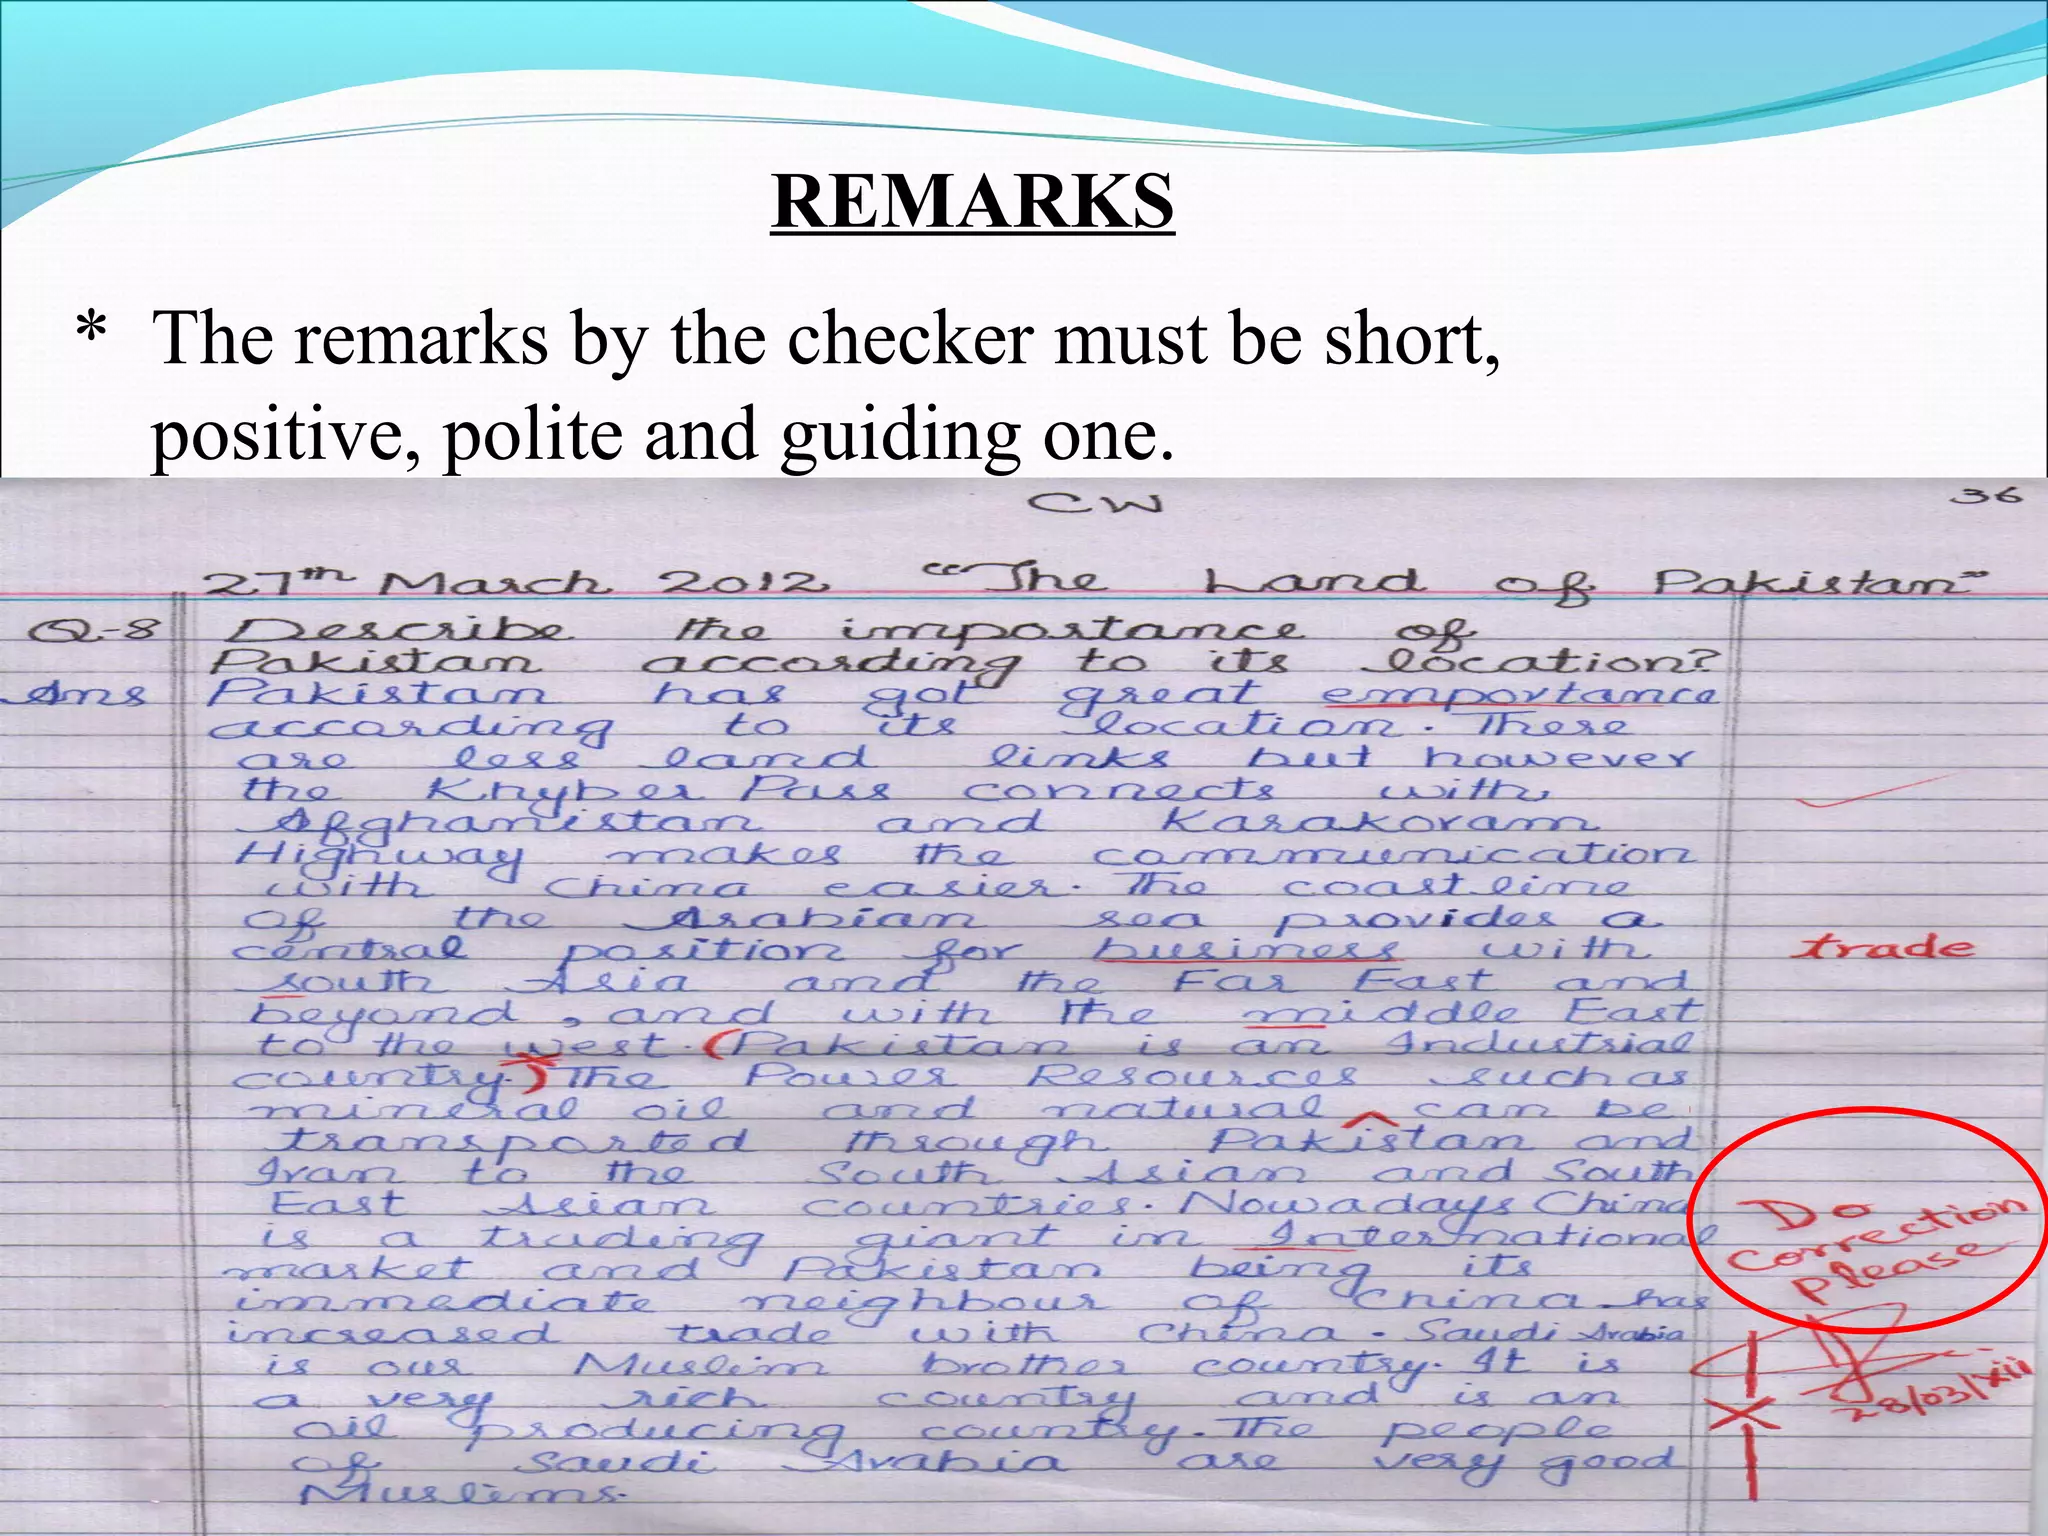 REMARKS
* The remarks by the checker must be short,
positive, polite and guiding one.
CW 36
27th March 2012 "The Land of Pakistan"
Q-8 Describe the importance of
Pakistan according to its location?
Ans Pakistan has got great emportance
according to its location. There
are less land links but however
the Khyber Pass connects with
Afghanistan and Karakoram
Highway makes the communication
with China easier. The coastline
of the Arabian sea provides a
central position for business with trade
south Asia and the Far East and
beyond, and with the middle East
to the west. (Pakistan is an Industrial
country.) The Power Resources such as
mineral oil and natural ^ can be
transported through Pakistan and
Iran to the South Asian and South
East Asian countries. Nowadays China
is a trading giant in International
market and Pakistan being its
immediate neighbour of China has
increased trade with China. Saudi Arabia
is our Muslim brother country. It is
a very rich country and is an
oil producing country. The people
of Saudi Arabia are very good
Muslims.
Do
Correction
Please
28/03/xii